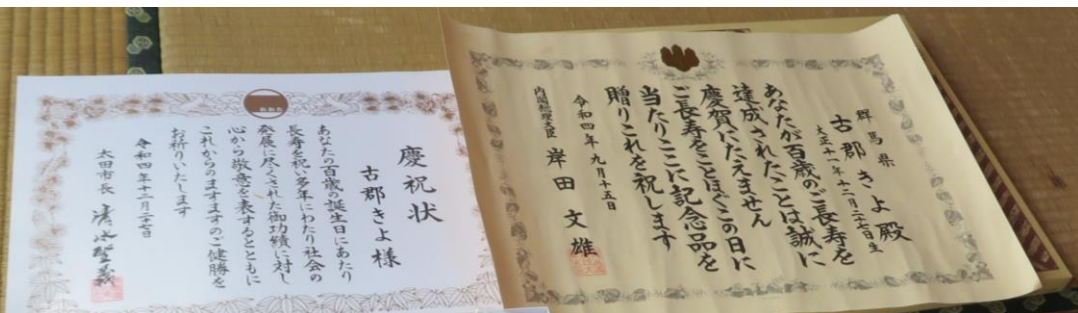 慶祝状
古郡きよ様
あなたの百歳の誕生日にあたり
長寿を祝い多年にわたり社会の
発展に尽くされた御功績に対し
心から敬意を表するとともに
これからのますますのご健勝を
お祈りいたします
令和四年十二月二十七日
太田市長 清水聖義
群馬県
古郡きよ殿
大正十一年十二月二十七日生
あなたが百歳のご長寿を
達成されたことは誠に
慶賀にたえません
ご長寿をことほぐこの日に
当たりここに記念品を
贈りこれを祝します
令和四年九月十五日
内閣総理大臣 岸田文雄